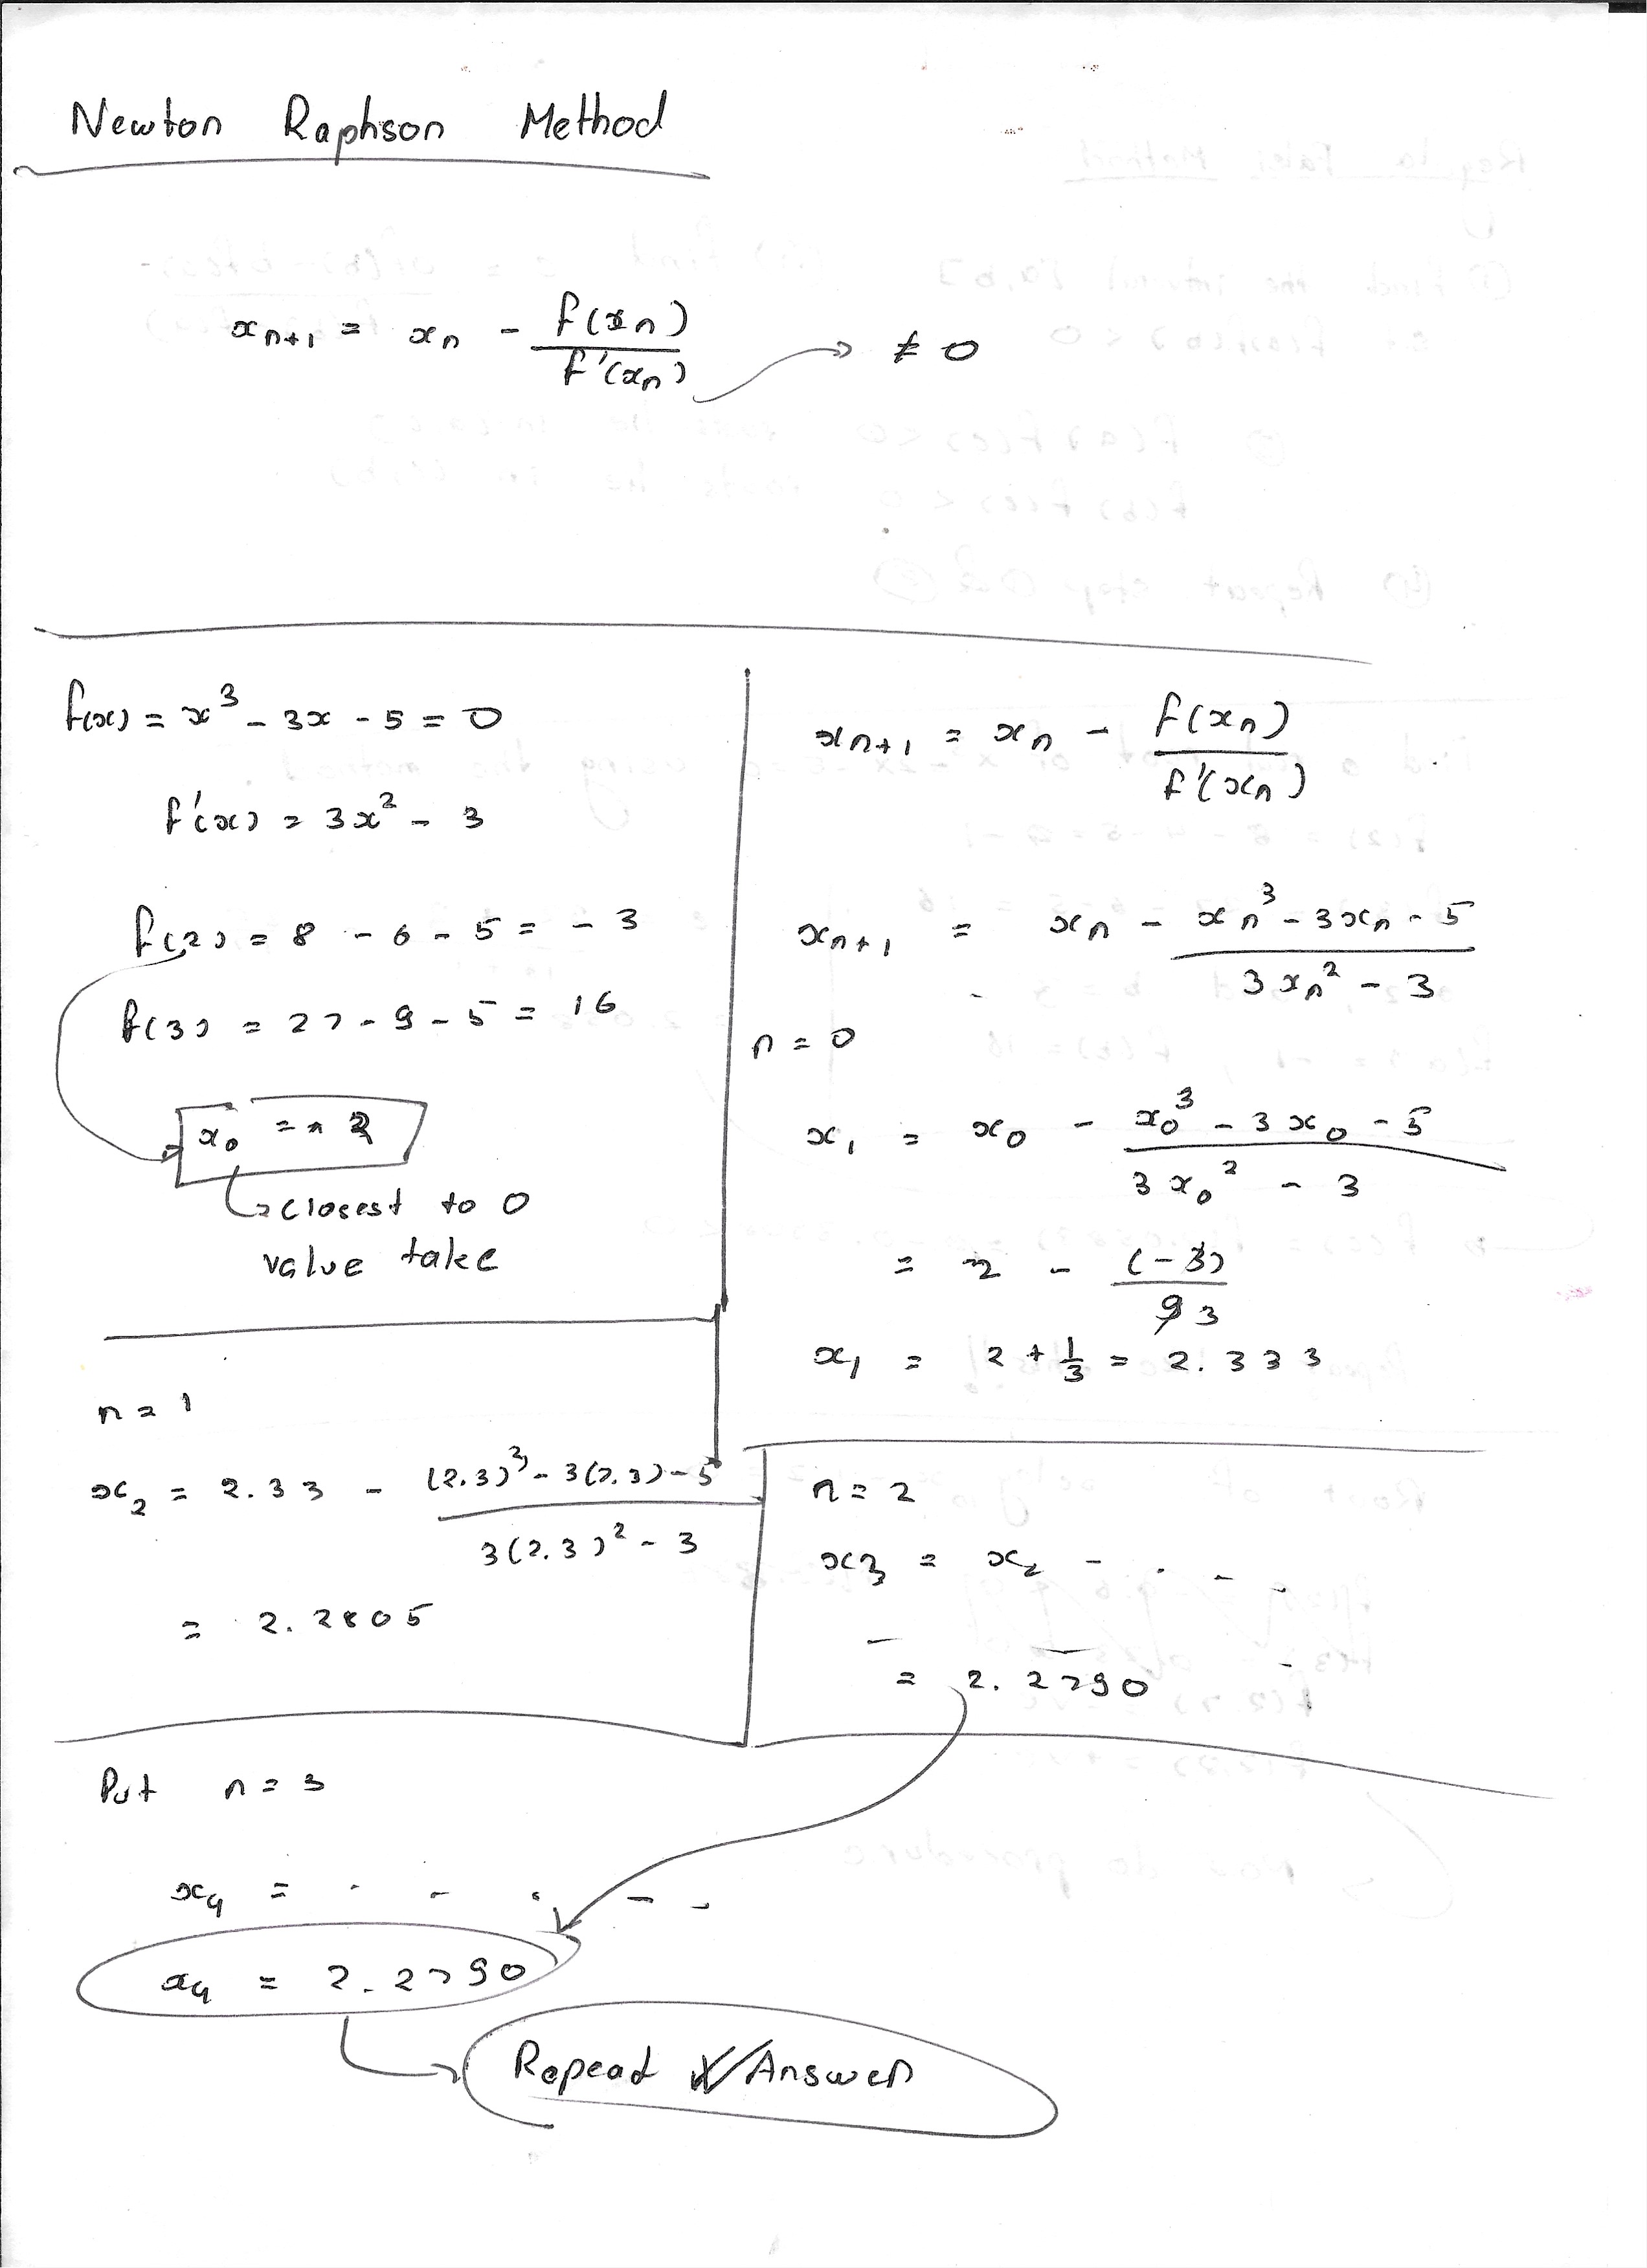 Newton Raphson Method
xₙ₊₁ = xₙ - f(xₙ) / f'(xₙ) → ≠ 0
f(x) = x³ - 3x - 5 = 0
f'(x) = 3x² - 3
f(2) = 8 - 6 - 5 = -3
f(3) = 27 - 9 - 5 = 16
x₀ = 2
closest to 0
value take
xₙ₊₁ = xₙ - f(xₙ) / f'(xₙ)
xₙ₊₁ = xₙ - xₙ³ - 3xₙ - 5 / 3xₙ² - 3
n = 0
x₁ = x₀ - x₀³ - 3x₀ - 5 / 3x₀² - 3
= 2 - (-3) / 9 3
x₁ = 2 + 1/3 = 2.333
n = 1
x₂ = 2.33 - (2.3)³ - 3(2.3) - 5 / 3(2.3)² - 3
= 2.2805
n = 2
x₃ = x₂ - . - -
= 2.2790
Put n = 3
x₄ = . - . - -
x₄ = 2.2790
Repeat Answer